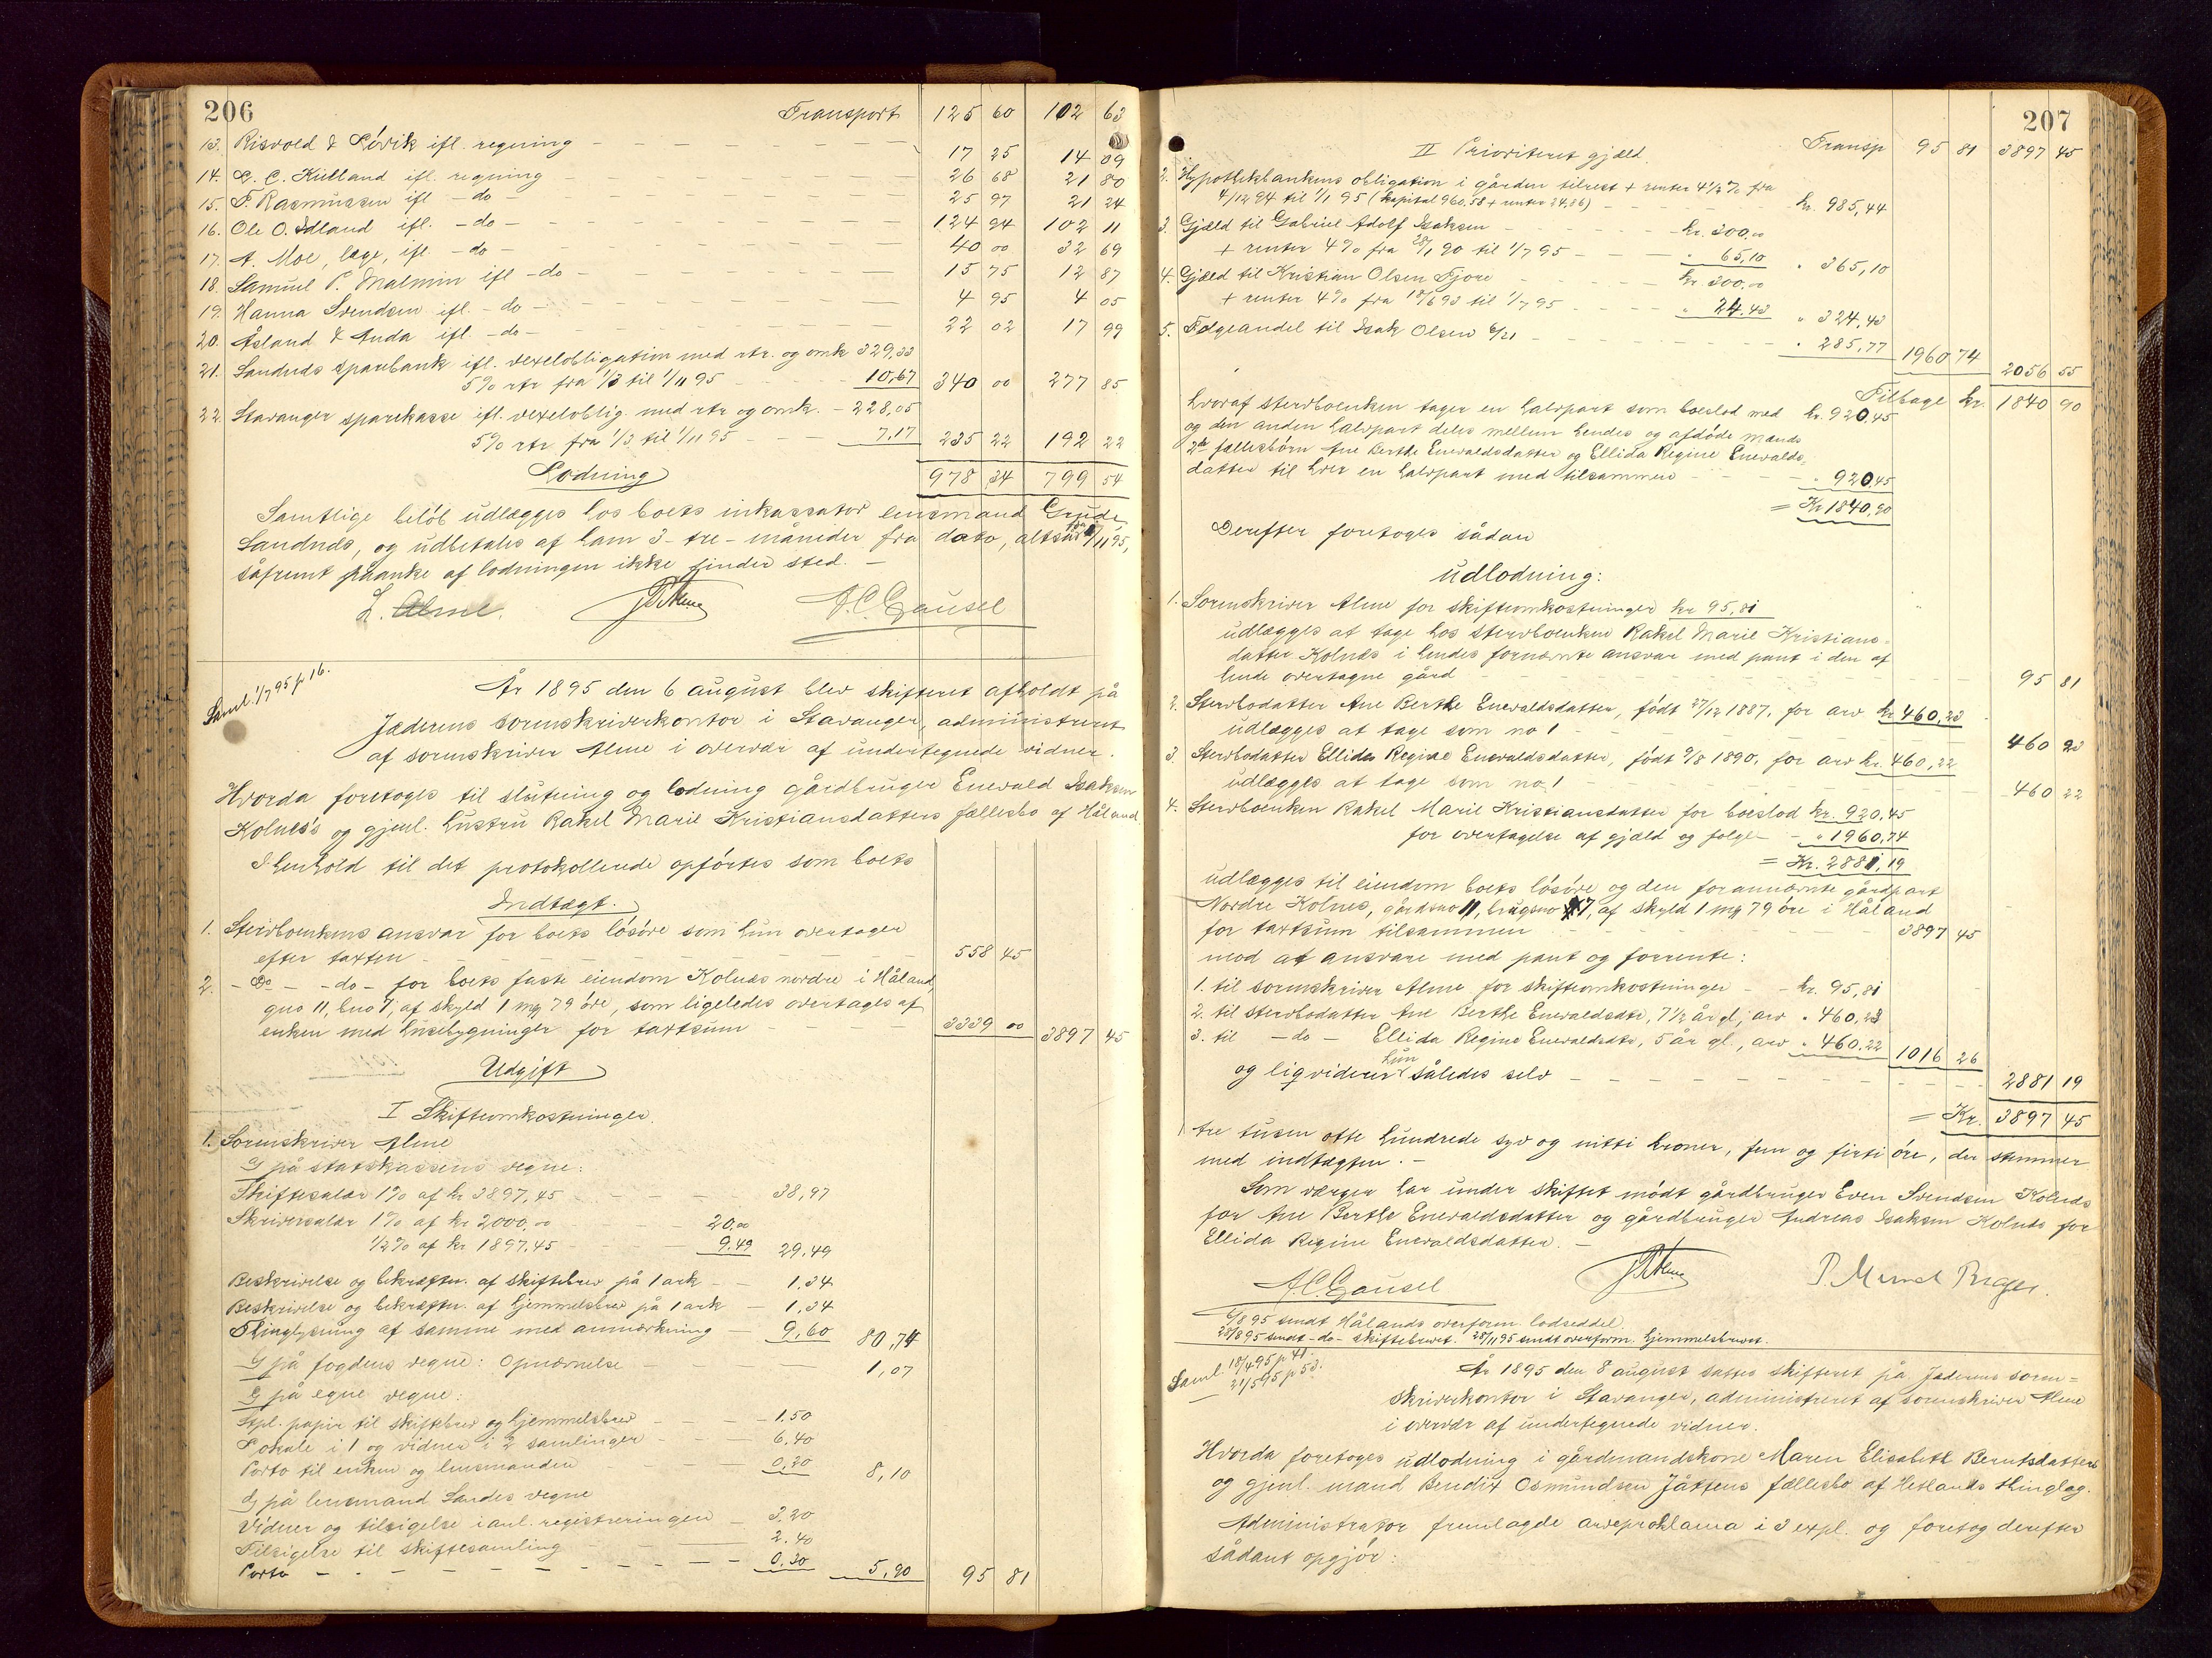 206
Transport 125 60 102 63
13. Risvold & Løvik ifl. regning 17 25 14 09
14. G. C. Kielland ifl. regning 26 68 21 80
15. F. Rasmussen ifl - do - 25 97 21 24
16. Ole O. Idland ifl. - do - 124 94 102 11
17. A. Moe, læge, ifl. - do - 40 00 32 69
18. Samuel P. Malmin ifl - do - 15 75 12 87
19. Hanna Svendsen ifl. - do - 4 95 4 05
20. Åsland & Auda ifl. - do - 22 02 17 99
21. Sandnes sparebank ifl. vexelobligation med rtr. og omk 329,33
5% rtr fra 1/3 til 1/11 95 10,67 340 00 277 85
22. Stavanger sparekasse ifl. vexeloblig. med rtr og omk. - 228,05
5% rtr. fra 1/3 til 1/11 95 7,17 235 22 192 22
Lodning 978 34 799 54
Samtlige beløb udlægges hos boets inkassator lensmand Grude,
Sandnes, og udbetales af ham 3 - tre - måneder fra dato, altså fra 6/11 95,
såfremt påanke af lodningen ikke finder sted. -
L. Alme. A.C. Gausel
Saml. 1/7 95 p. 16.
År 1895 den 6 august blev skifteret afholdt på
Jæderens sorenskriverkontor i Stavanger, administreret
af sorenskriver Alme i overvær af undertegnede vidner.
Hvorda foretoges til slutning og lodning gårdbruger Enevald Isaksen
Kolnes's og gjenl. hustru Rakel Marie Kristiansdatters fællesbo af Håland.
I henhold til det protokollerede opførtes som boets
Indtægt.
1. Stervboenkens ansvar for boets løsøre som hun overtager
efter taxten 558 45
2. - Do - - do - for boets faste eiendom Kolnes nordre i Håland,
gno 11, bno 7, af skyld 1 mg 79 øre, som ligeledes overtages af
enken med husebygninger for taxtsum 3339 00 3897 45
Udgift
I Skifteomkostninger.
1. Sorenskriver Alme
a) på statskassens vegne:
Skiftesalær 1% af kr 3897,45 38,97
Skriversalær 1% af kr 2000,00 20,00
1/2% af kr 1897,45 9,49 29,49
Beskrivelse og bekræftn. af skiftebrev på 1 ark 1.34
Beskrivelse og bekræftn. af hjemmelsbrev på 1 ark 1,34
Thinglysning af samme med anmærkning 9,60 80,74
b) på fogdens vegne: Opnævnelse 1,07
c) på egne vegne:
Stpl. papir til skiftebrev og hjemmelsbrev 1.50
Lokale i 1 og vidner i 2 samlinger 6,40
Porto til enken og lensmanden 0,20 8,10
d) på lensmand Sandes vegne
Vidner og tilsigelse i anl. registreringen 3,20
Tilsigelse til skiftesamling 2.40
Porto 0.30 5,90 95 81
207
II Prioriteret gjæld. Transp 95 81 3897 45
2. Hypothekbankens obligation i gården tilrest + renter 4 1/2 % fra
4/12 94 til 1/7 95 (kapital 960,58 + renter 24,86) kr. 985,44
3. Gjæld til Gabriel Adolf Isaksen kr. 300.00
+ renter 4% fra 28/1 90 til 1/7 95 65,10 " 365,10
4. Gjæld til Kristian Olsen Tjore kr 300.00
+ renter 4% fra 18/6 93 til 1/7 95 " 24.43 " 324,43
5. Følgeandel til Isak Olsen 6/21 " 285,77 1960 74 2056 55
Tilbage kr. 1840 90
hvoraf stervboenken tager en halvpart som boeslod med kr. 920,45
og den anden halvpart deles mellem hendes og afdøde mands
2de fællesbørn Ane Berthe Enevaldsdatter og Ellida Regine Enevalds-
datter til hver en halvpart med tilsammen " 920,45
= Kr 1840,90
Derefter foretoges sådan
udlodning:
1. Sorenskriver Alme for skifteomkostninger kr 95,81
udlægges at tage hos stervboenken Rakel Marie Kristians-
datter Kolnes i hendes fornævnte ansvar med pant i den af
hende overtagne gård 95 81
2. Stervbodatter Ane Berthe Enevaldsdatter, født 27/12 1887, for arv kr 460,23
udlægges at tage som no 1 460 23
3. Stervbodatter Ellida Regine Enevaldsdatter, født 9/8 1890, for arv kr. 460,22
udlægges at tage som no. 1 460 22
4. Stervboenken Rakel Marie Kristiansdatter for boeslod kr. 920,45
for overtagelse af gjæld og følge - " 1960,74
= Kr. 2881,19
udlægges til eiendom boets løsøre og den forannævnte gårdpart
Nordre Kolnes, gårdsno 11, brugsno 7, af skyld 1 mg 79 øre i Håland
for taxtsum tilsammen 3897 45
mod at ansvare med pant og forrente:
1. til sorenskriver Alme for skifteomkostninger - kr. 95,81
2. til stervbodatter Ane Berthe Enevaldsdtr, 7 1/2 år gl., arv " 460,23
3. til - do - Ellida Regine Enevaldsdtr, 5 år gl., arv " 460.22 1016 26
og ligviderer hun således selv 2881 19
= Kr. 3897 45
tre tusen otte hundrede syv og nitti kroner, fem og firti øre, der stemmer
med indtægten. -
Som værger har under skiftet mødt gårdbruger Even Svendsen Kolnes
for Ane Berthe Enevaldsdatter og gårdbruger Andreas Isaksen Kolnes for
Ellida Regine Enevaldsdatter. -
A.C. Gausel
6/8 95 sendt Hålands overform. lodseddel.
28/8 95 sendt - do - skiftebrevet. 28/11 95 sendt overform. hjemmelsbrevet.
Saml. 18/4 95 p 41.
21/5 95 p 53.
År 1895 den 8 august sattes skifteret på Jæderens soren-
skriverkontor i Stavanger, administreret af sorenskriver Alme
i overvær af undertegnede vidner.
Hvorda foretoges udlodning i gårdmandskone Maren Elisabeth Berntsdatters
og gjenl. mand Bendix Osmundsen Jåttens fællesbo af Hetlands thinglag.
Administrator fremlagde arveproklama i 3 expl. og foretog derefter
sådant opgjør: